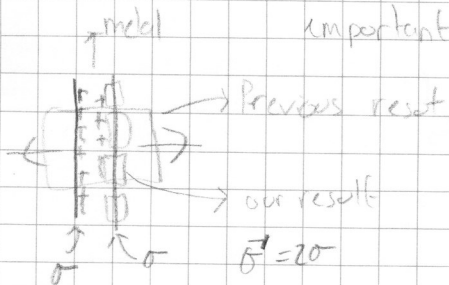 metal
important
Previous reset
our result
σ
σ
σ' = 2σ